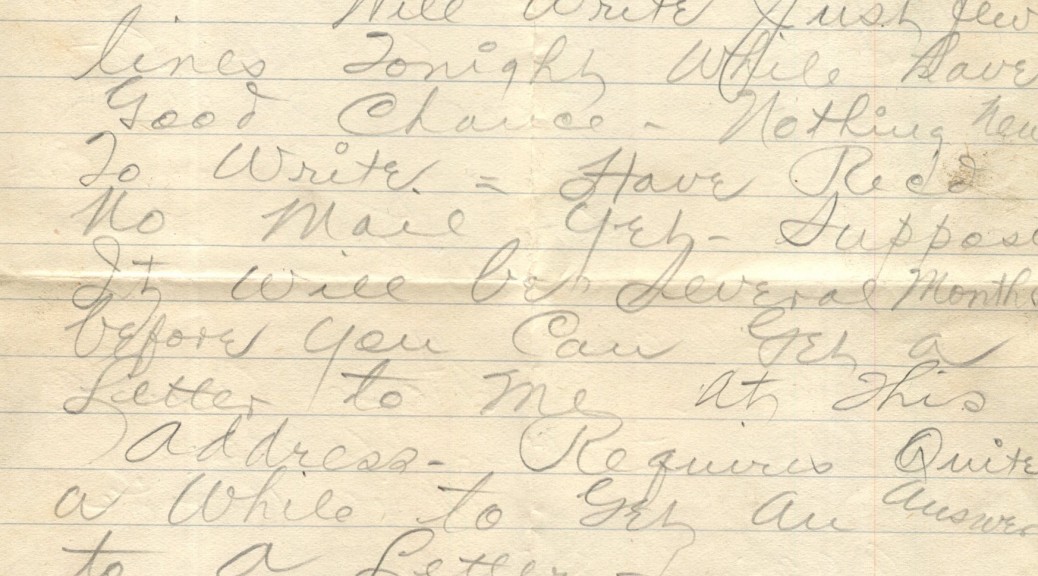 Will Write Just few
lines Tonight While Have
Good Chance - Nothing New
To Write. = Have Recd
No Mail Yet - Suppose
It Will be Several Months
before you Can Get a
Letter to Me at This
address - Requires Quite
a While to Get an answer
to a Letter -